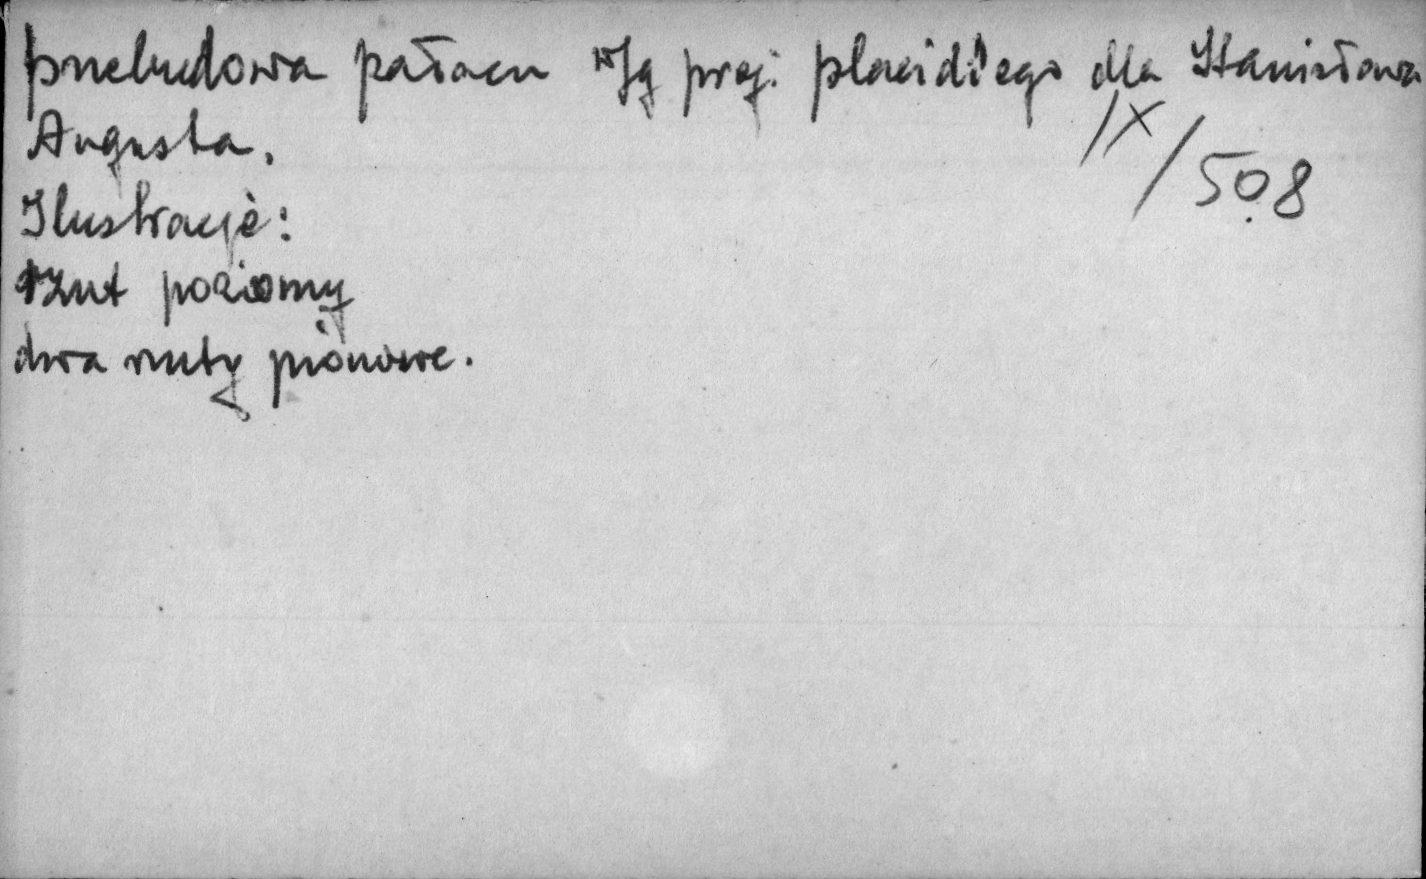 przebudowa pałacu w/g proj. placidi'ego dla Stanisława
Augusta.
IX/508
Ilustracje:
rzut poziomy
dwa rzuty pionowe.